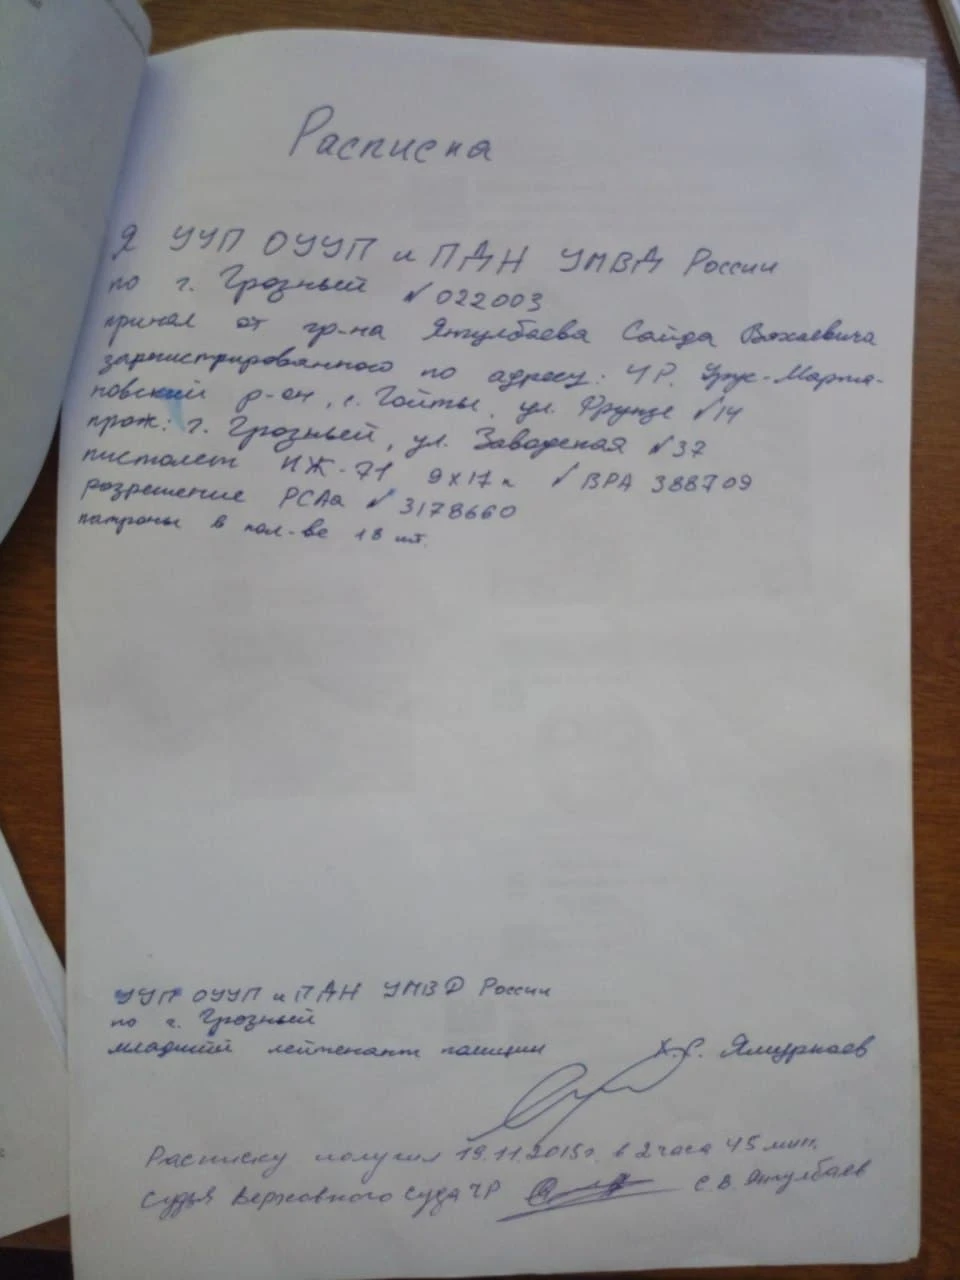 Расписка
Я УУП ОУУП и ПДН УМВД России
по г. Грозный №022003
принял от гр-на Янгулбаева Сайда Вахаевича
зарегистрированного по адресу: ЧР. Урус-Марта-
новский р-он, с. Гойты, ул. Фрунзе №14
прож: г. Грозный, ул. Заводская №37
пистолет ИЖ-71 9х17к № ВРА 388709
разрешение РСАа № 3178660
патроны в кол-ве 18 шт.
УУП ОУУП и ПДН УМВД России
по г. Грозный
младший лейтенант полиции Х.С. Ямурзаев
Расписку получил 19.11.2015г. в 2 часа 45 мин.
Судья Верховного суда ЧР С.В Янгулбаев